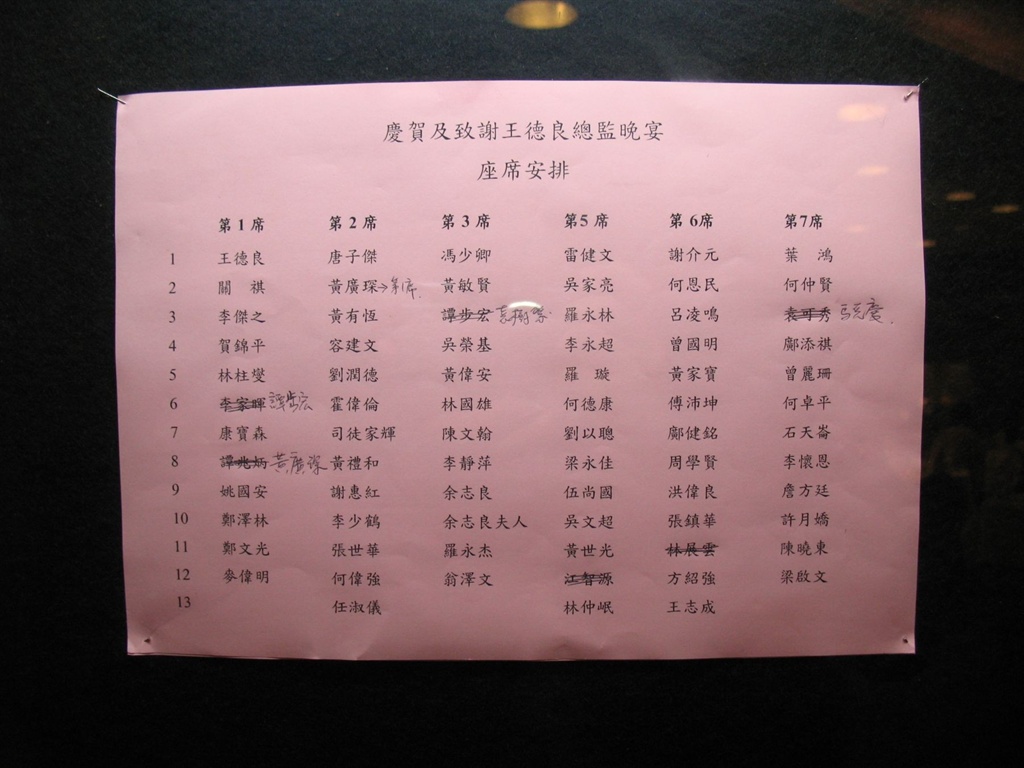 慶賀及致謝王德良總監晚宴
座席安排
第1席 第2席 第3席 第5席 第6席 第7席
1 王德良 唐子傑 馮少卿 雷健文 謝介元 葉 鴻
2 關 祺 黃廣琛→第1席 黃敏賢 吳家亮 何恩民 何仲賢
3 李傑之 黃有恆 譚步宏 羅永林 呂凌鳴 袁可秀
4 賀錦平 容建文 吳榮基 李永超 曾國明 鄺添祺
5 林柱燮 劉潤德 黃偉安 羅 璇 黃家寶 曾麗珊
6 李家暉 譚步宏 霍偉倫 林國雄 何德康 傅沛坤 何卓平
7 康寶森 司徒家輝 陳文翰 劉以聰 鄺健銘 石天崙
8 譚兆炳 黃廣琛 黃禮和 李靜萍 梁永佳 周學賢 李懷恩
9 姚國安 謝惠紅 余志良 伍尚國 洪偉良 詹方廷
10 鄭澤林 李少鶴 余志良夫人 吳文超 張鎮華 許月嬌
11 鄭文光 張世華 羅永杰 黃世光 林展雲 陳曉東
12 麥偉明 何偉強 翁澤文 江智源 方紹強 梁啟文
13 任淑儀 林仲岷 王志成